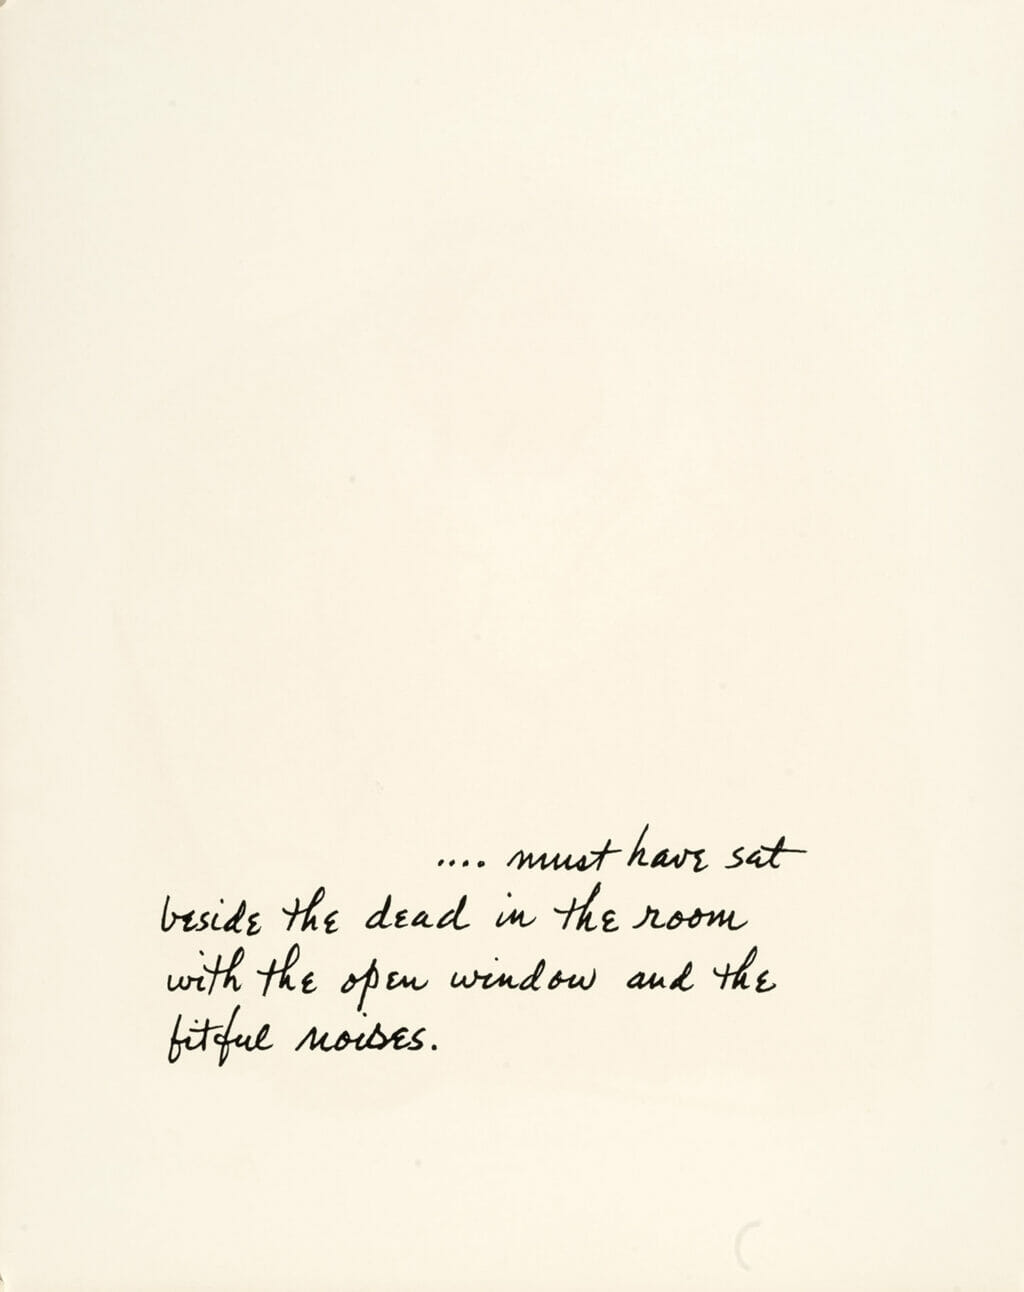 .... must have sat
beside the dead in the room
with the open window and the
fitful noises.